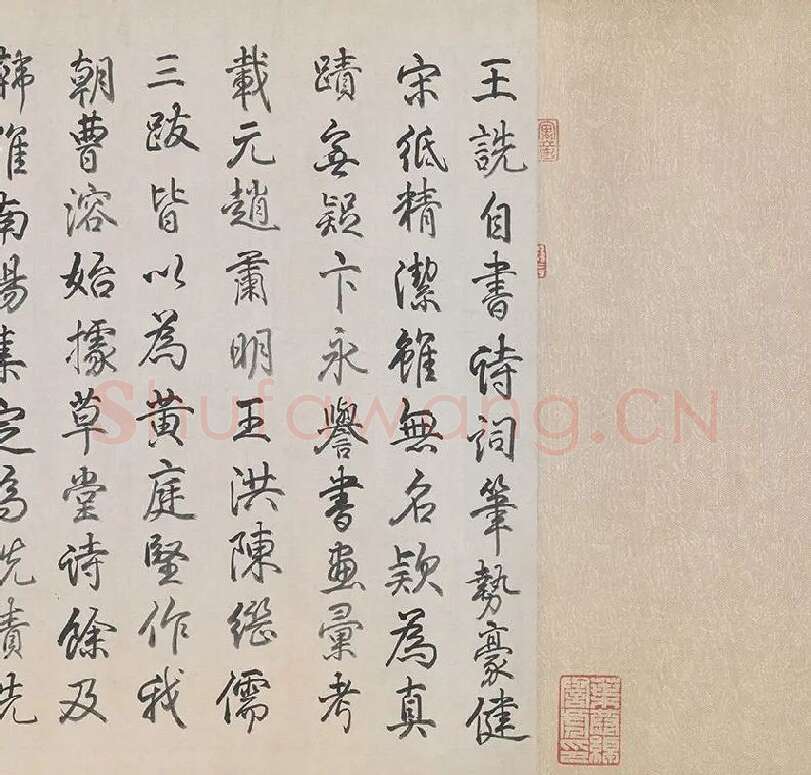 王詵自書詩詞筆勢豪健
宋紙精潔雖無名款為真
蹟無疑卞永譽書畫彙考
載元趙肅明王洪陳繼儒
三跋皆以為黃庭堅作我
朝曹溶始據草堂詩餘及
韓維南陽集定為詵蹟詵
Shufawang.CN